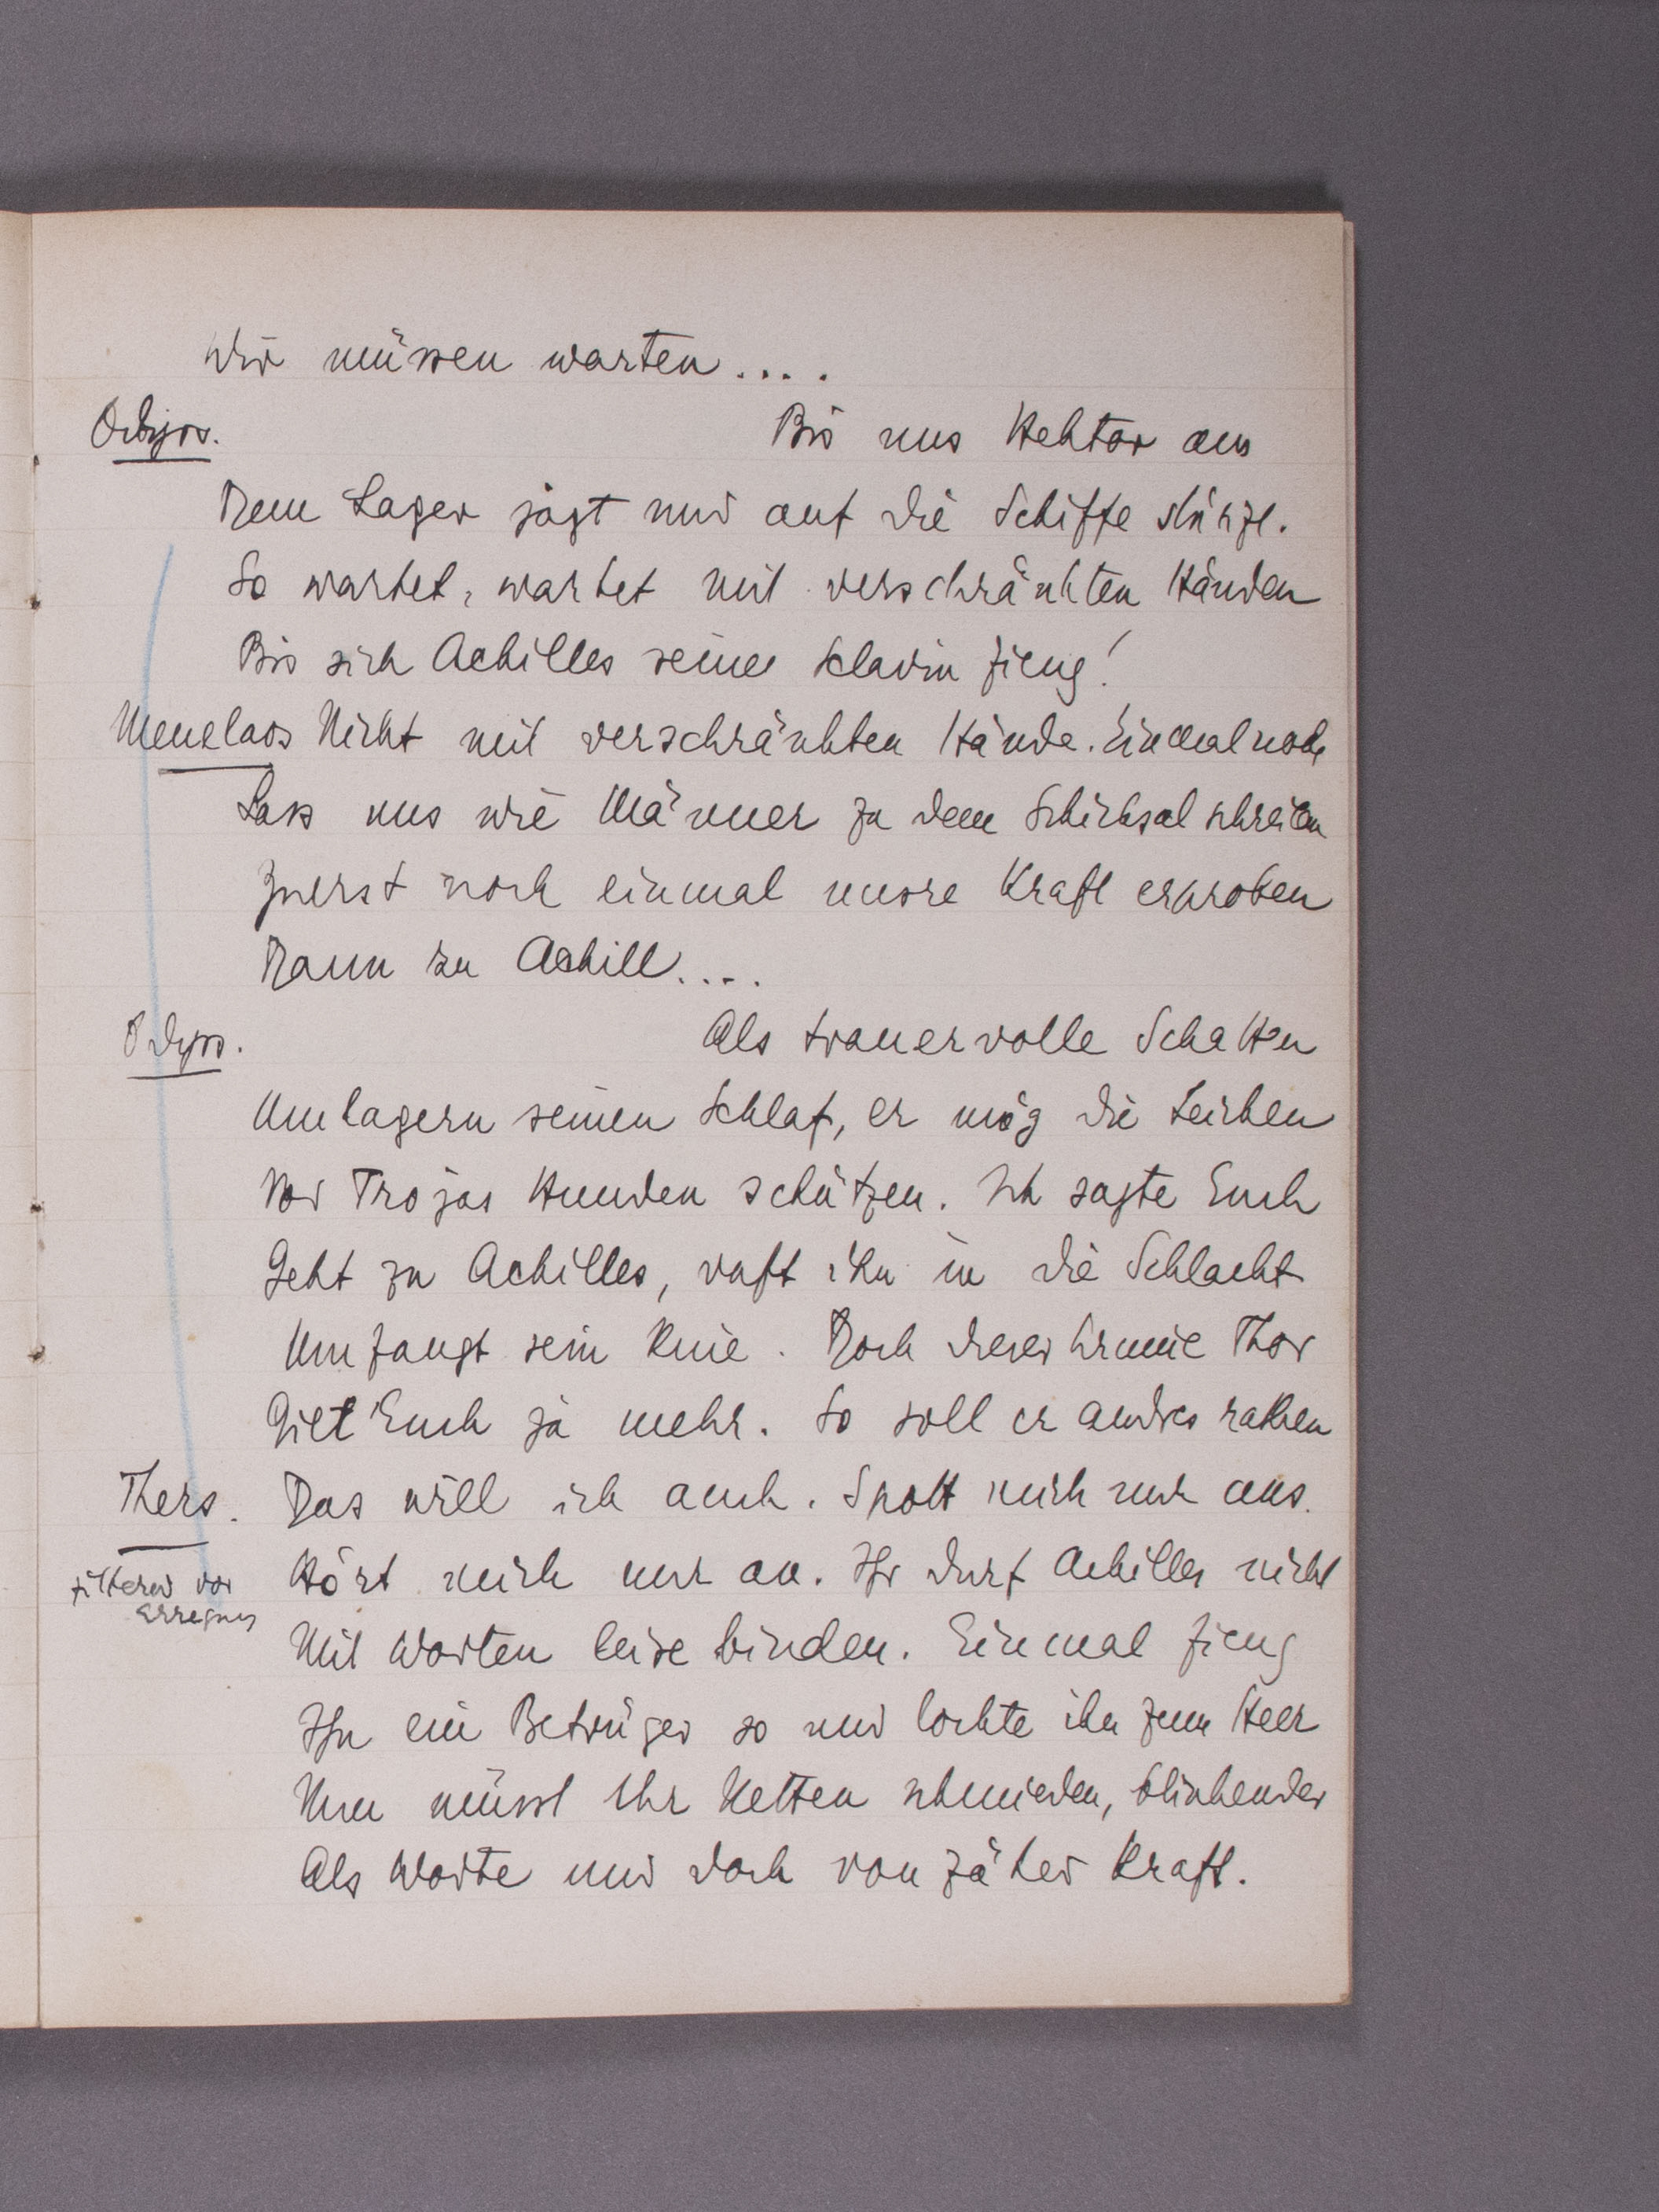 Wir müssen warten....
Odyss. Bis uns Hektor aus
Dem Lager jagt und auf die Schiffe stürzt.
So wartet, wartet mit verschränkten Händen
Bis sich Achilles seine Sclavin fieng!
Menelaos Nicht mit verschränkten Hände. Einmal noch
Lass uns wie Männer zu dem Schicksal schreien
Zuerst noch einmal unsre Kraft erproben
Dann zu Achill....
Odyss. Als trauervolle Schatten
Umlagern seinen Schlaf, er mög die Leichen
Vor Trojas Hunden schützen. Ich sagte Euch
Geht zu Achilles, ruft ihn in die Schlacht
Umfangt sein Knie. Doch dieser Thor
Gilt Euch ja mehr. So soll er andres rathen
Thers. Das will ich auch. Spott mich nur aus.
zitternd vor Erregung
Hört mich nur an. Ihr dürf Achilles nicht
Mit Worten leise binden. Einmal fieng
Ihn ein Betrüger so und lockte ihn zum Heer
Nun müsst Ihr Ketten schmieden, blinkender
Als Worte und doch von zäher Kraft.